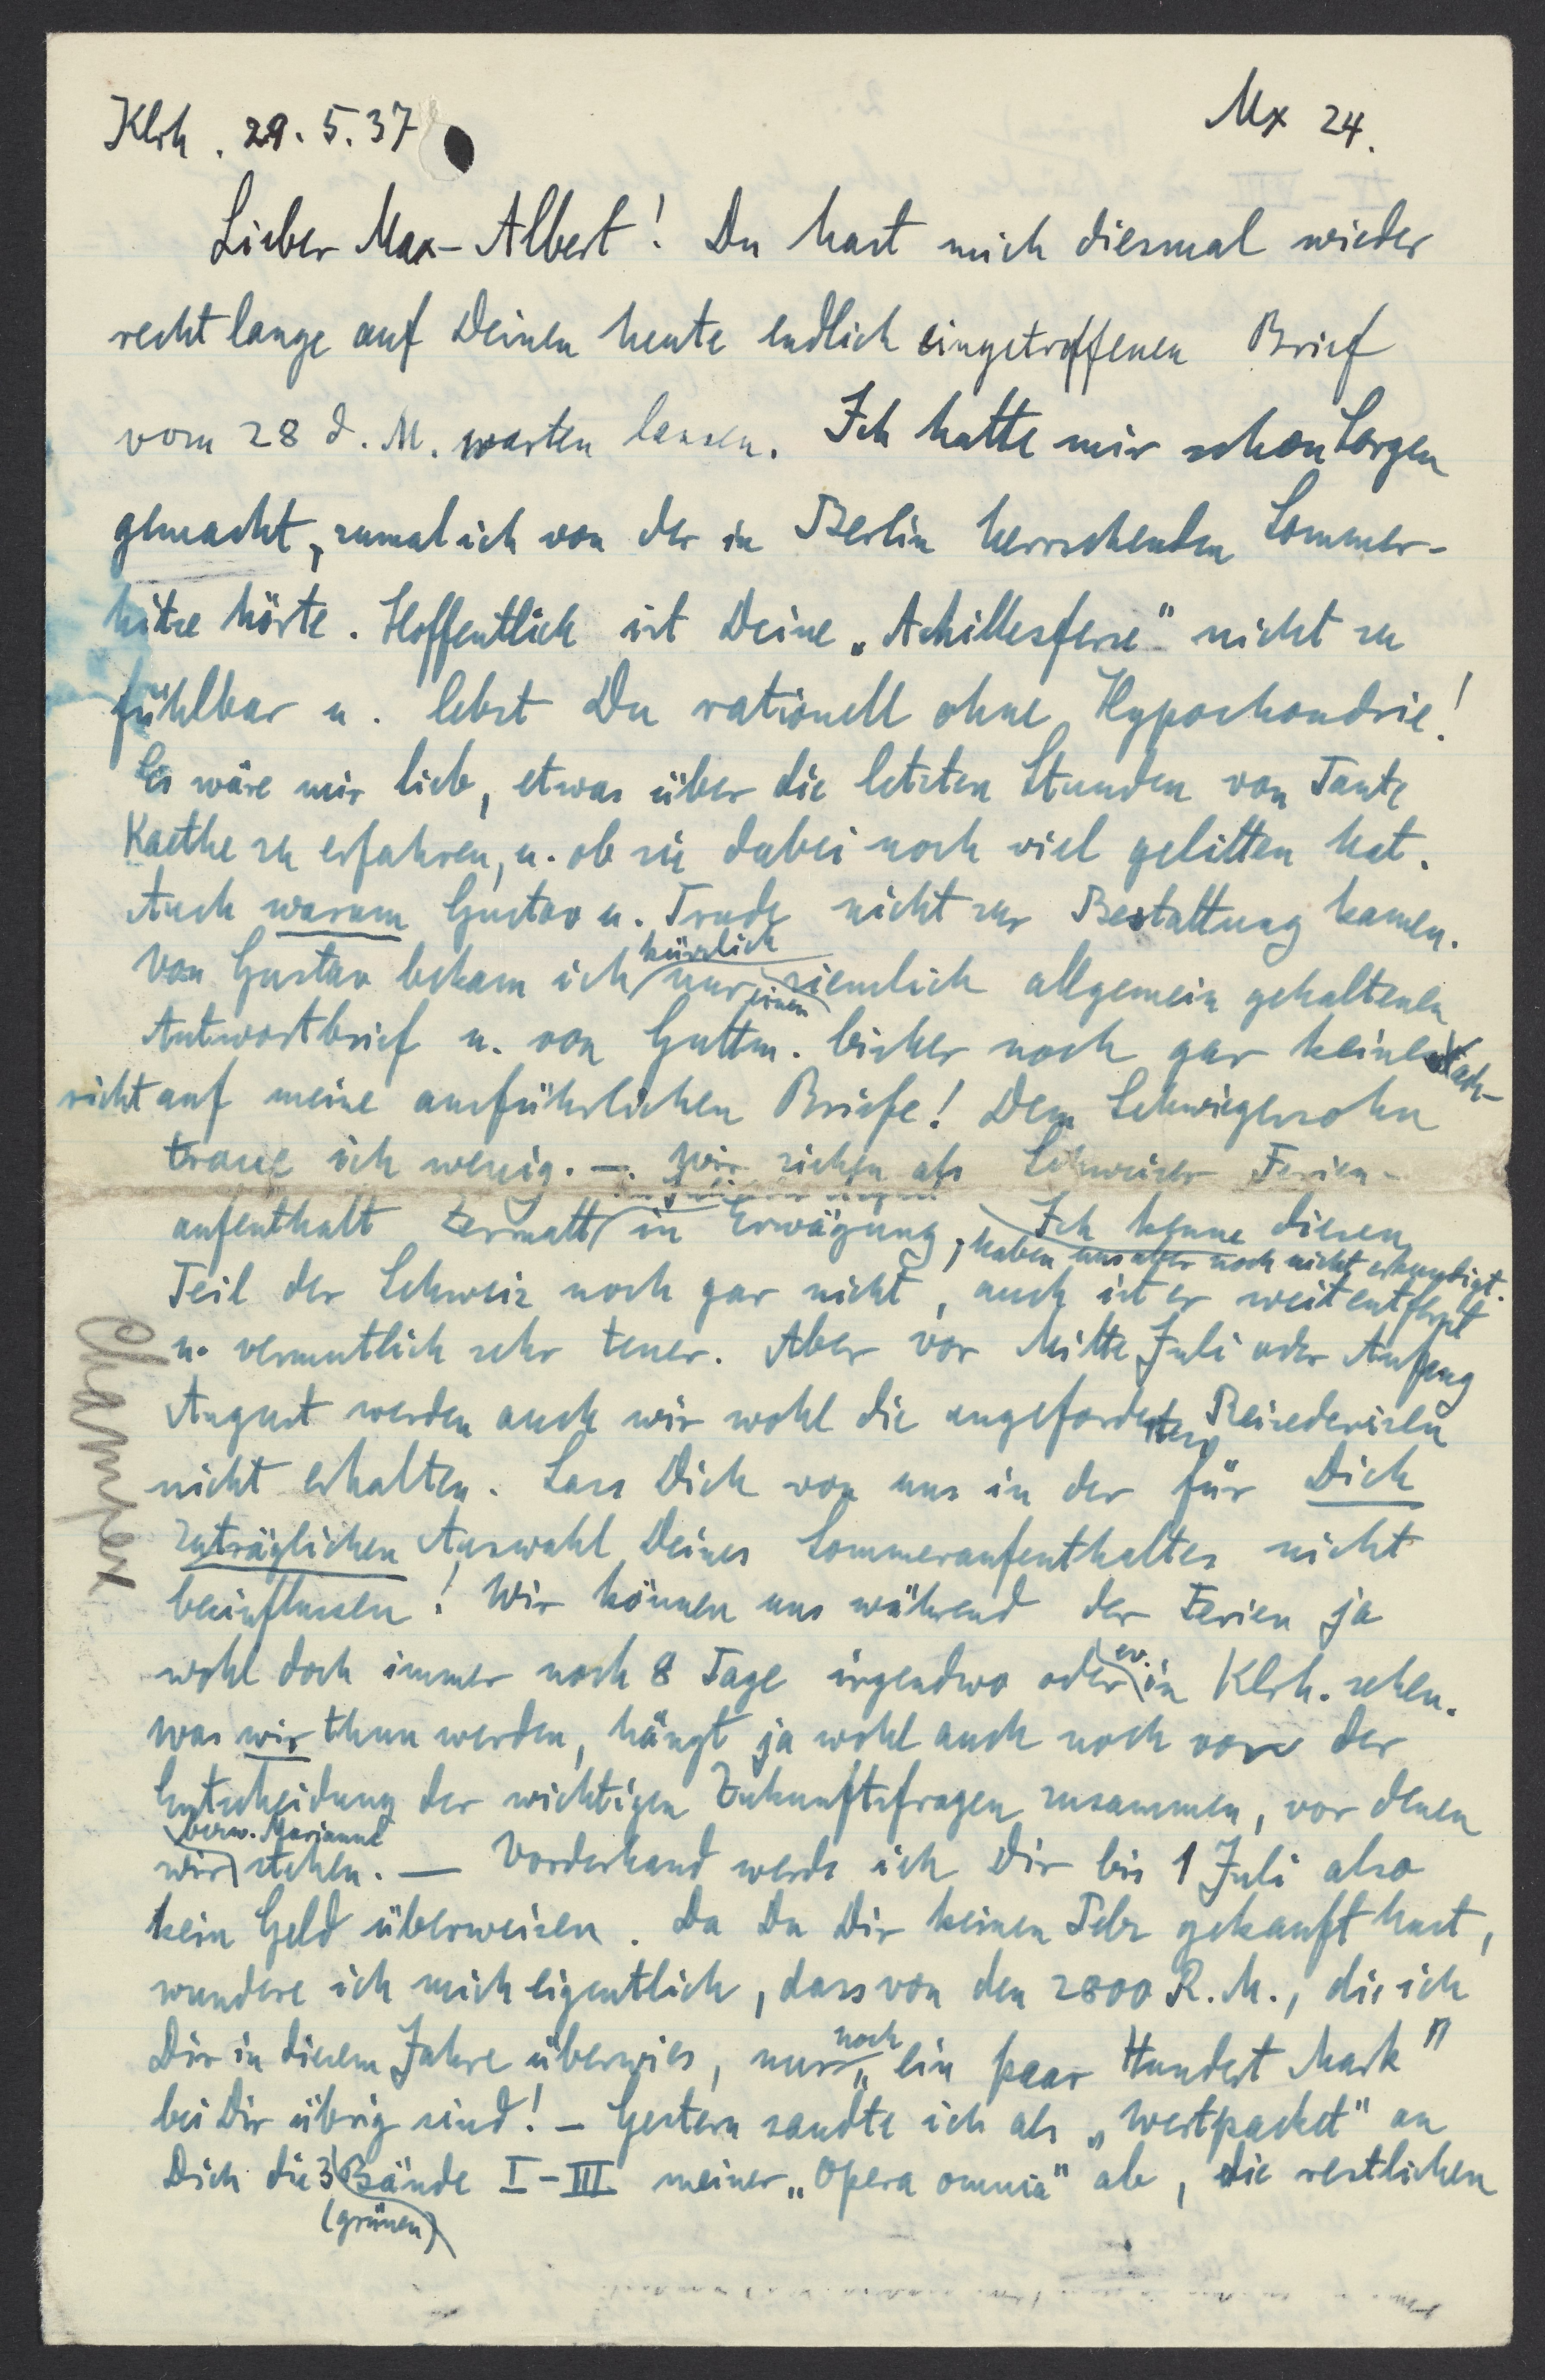 Klrh. 29.5.37
Mx 24.
Lieber Max-Albert! Du hast mich diesmal wieder
recht lange auf Deinen heute endlich eingetroffenen Brief
vom 28 d. M. warten lassen. Ich hatte mir schon Sorgen
gemacht, zumal ich von der in Berlin herrschenden Sommer-
hitze hörte. Hoffentlich ist Deine „Achillesferse" nicht zu
fühlbar u. lebst Du rationell ohne Hypochondrie!
Es wäre mir lieb, etwas über die letzten Stunden von Tante
Kaethe zu erfahren, u. ob sie dabei noch viel gelitten hat.
Auch warum Gustav u. Trude nicht zur Bestattung kamen.
Von Gustav bekam ich kürzlich nur einen ziemlich allgemein gehaltenen
Antwortbrief u. von Guttm. bisher noch gar keine Nach-
richt auf meine ausführlichen Briefe! Dem Schwiegersohn
traue ich wenig. — Wir ziehen als Schweizer Ferien-
aufenthalt Zermatt in Erwägung, haben uns aber noch nicht erkundigt. Ich kenne diesen
Teil der Schweiz noch gar nicht, auch ist er weit entfernt
u. vermutlich sehr teuer. Aber vor Mitte Juli oder Anfang
August werden auch wir wohl die angeforderten Reisedevisen
nicht erhalten. Lass Dich von uns in der für Dich
zuträglichen Auswahl Deines Sommeraufenthaltes nicht
beeinflussen! Wir können uns während der Ferien ja
wohl doch immer noch 8 Tage irgendwo oder ev. in Klrh. sehen.
Was wir thun werden, hängt ja wohl auch noch von der
Entscheidung der wichtigen Zukunftsfragen zusammen, vor denen
wir bezw. Marianne stehen. — Vorderhand werde ich Dir bis 1 Juli also
kein Geld überweisen. Da Du Dir keinen Pelz gekauft hast,
wundere ich mich eigentlich, dass von den 2800 R.M., die ich
Dir in diesem Jahre überwies, nur noch „ein paar Hundert Mark"
bei Dir übrig sind! – Gestern sandte ich als „Wertpacket" an
Dich die 3 (grünen) Bände I–III meiner „Opera omnia" ab, die restlichen
Champex